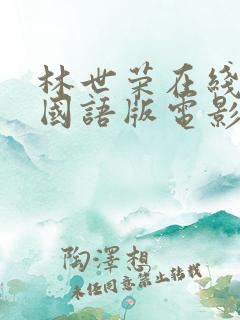 林世荣在綫
國語版電影
陶澤想
未经同意禁止转载